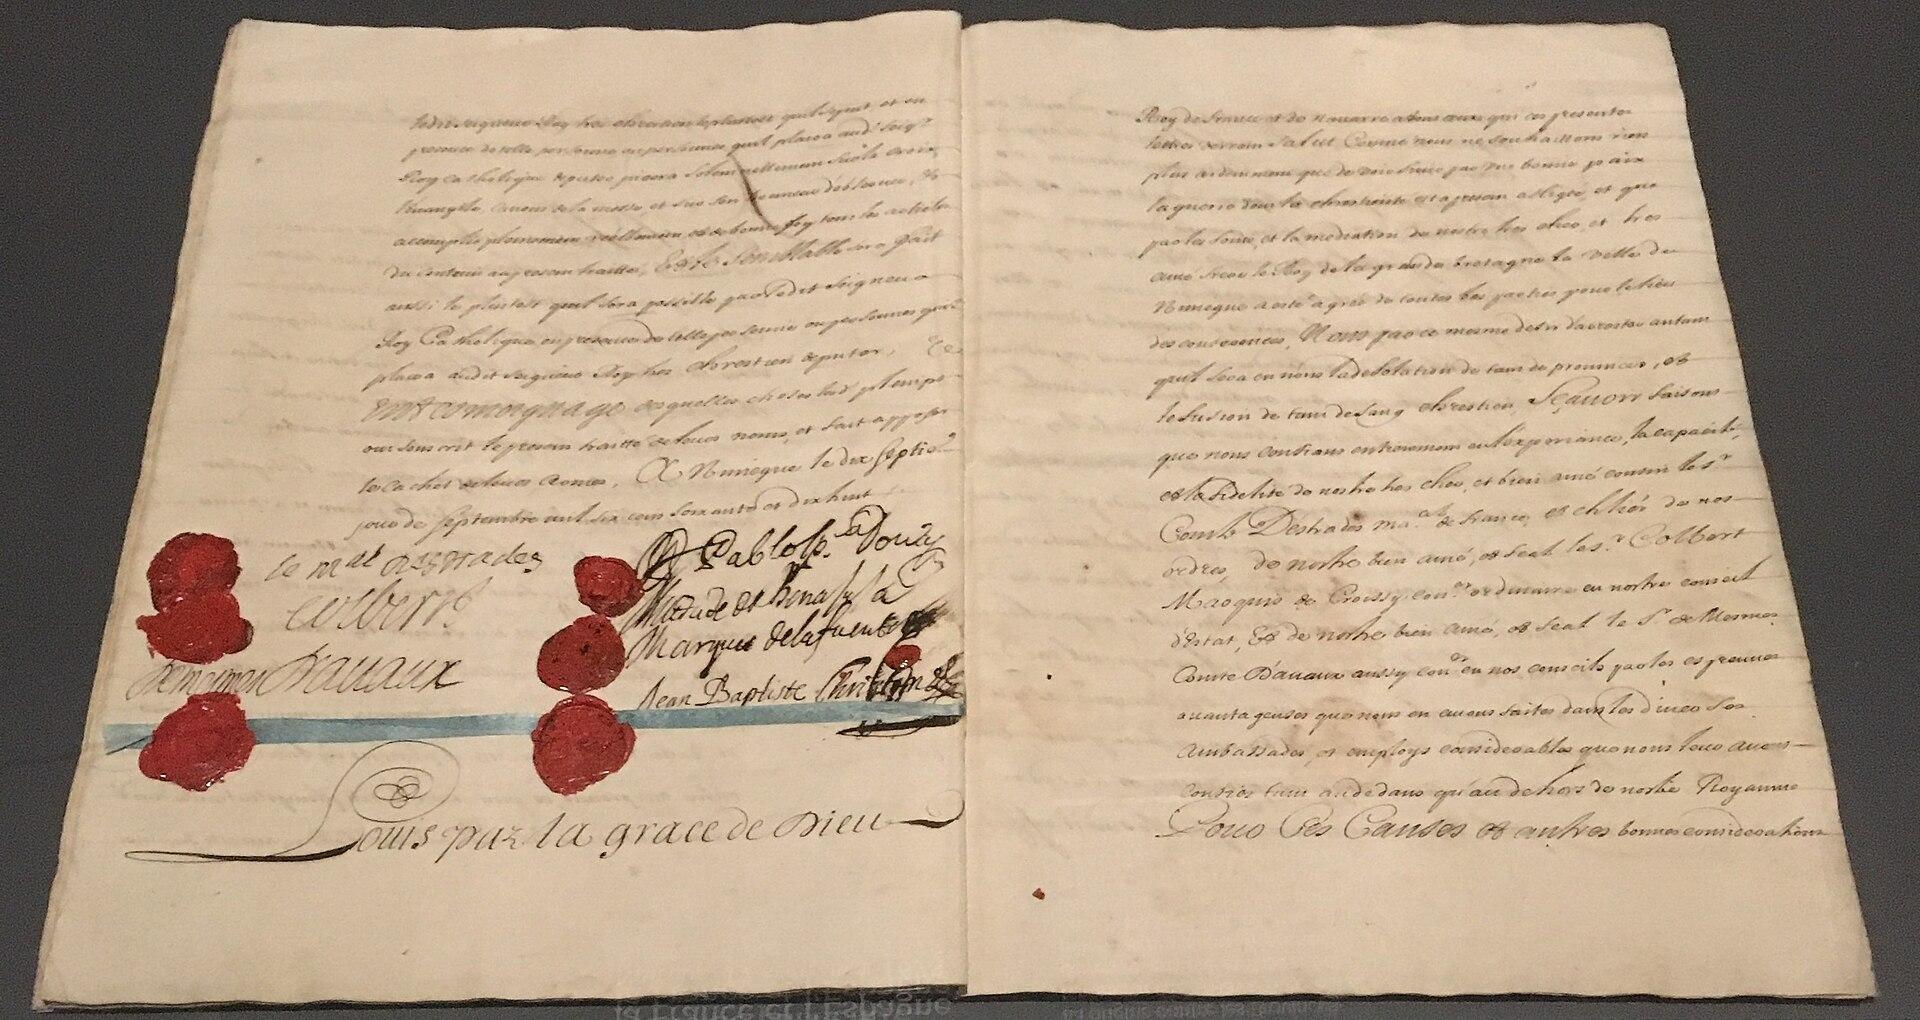 ledit seigneur Roy tres chrestien le plustost quil se peut et en
presence de telle personne ou personnes quil plaira aud. seig.r
Roy catholique deputer jurera solemnellement sur la croix,
Evangile, canons de la messe et sur son honneur d'observer, et
accomplir plainement reellement et de bonne foy tous les articles
du contenu au present traitté, Et le semblable sera fait
aussi le plustost quil sera possible par ledit seigneur
Roy Catholique en presence de telle personne ou personnes quil
plaira audit seigneur Roy tres chrestien deputer, En
en tesmoignage desquelles choses lesd. plenipo
ont souscrit le present traitté de leurs noms, et fait apposer
le cachet de leurs armes, A Nimegue le dix septie.
jour de septembre mil six cens soixante et dix huit
le m.al destrades
Pablo
colbert
Marques de la fuente
de mesmes d'avaux
Jean Baptiste Christyn
Louis par la grace de Dieu
Roy de france et de navarre a tous ceux qui ces presentes
lettres verront Salut Comme nous ne souhaittons rien
plus ardemment que de voir finir par une bonne paix
la guerre dont la chrestienté est a present affligée, et que
par les soins, et la mediation de nostre tres cher, et tres
amé frere le Roy de la grande bretagne la ville de
Nimegue a esté agreé de toutes les parties pour le lieu
des conferences, Nous par ce mesme desir d'arrester autant
quil sera en nous la desolation de tant de provinces, et
lefusion de tant de sang chrestien, Sçavoir faisons
que nous confians entierement en l'experience, la capacité,
et la fidelité de nostre tres cher, et bien amé cousin le s.r
Comte Destrades ma.al de france, et ch.lier de nos
ordres, de nostre bien amé, et feal le s.r Colbert
Marquis de Croissy con.er ordinaire en nostre conseil
d'Estat, Et de nostre bien amé, et feal le s.r de Mesmes
Comte Davaux aussy con.er en nos conseils par les espreuves
avantageuses que nous en avons faites dans les divers
ambassades, et employs considerables que nous leur avons
confiés tant au dedans qu'au dehors de nostre Royaume
Pour Ces Causes et autres bonnes considerations